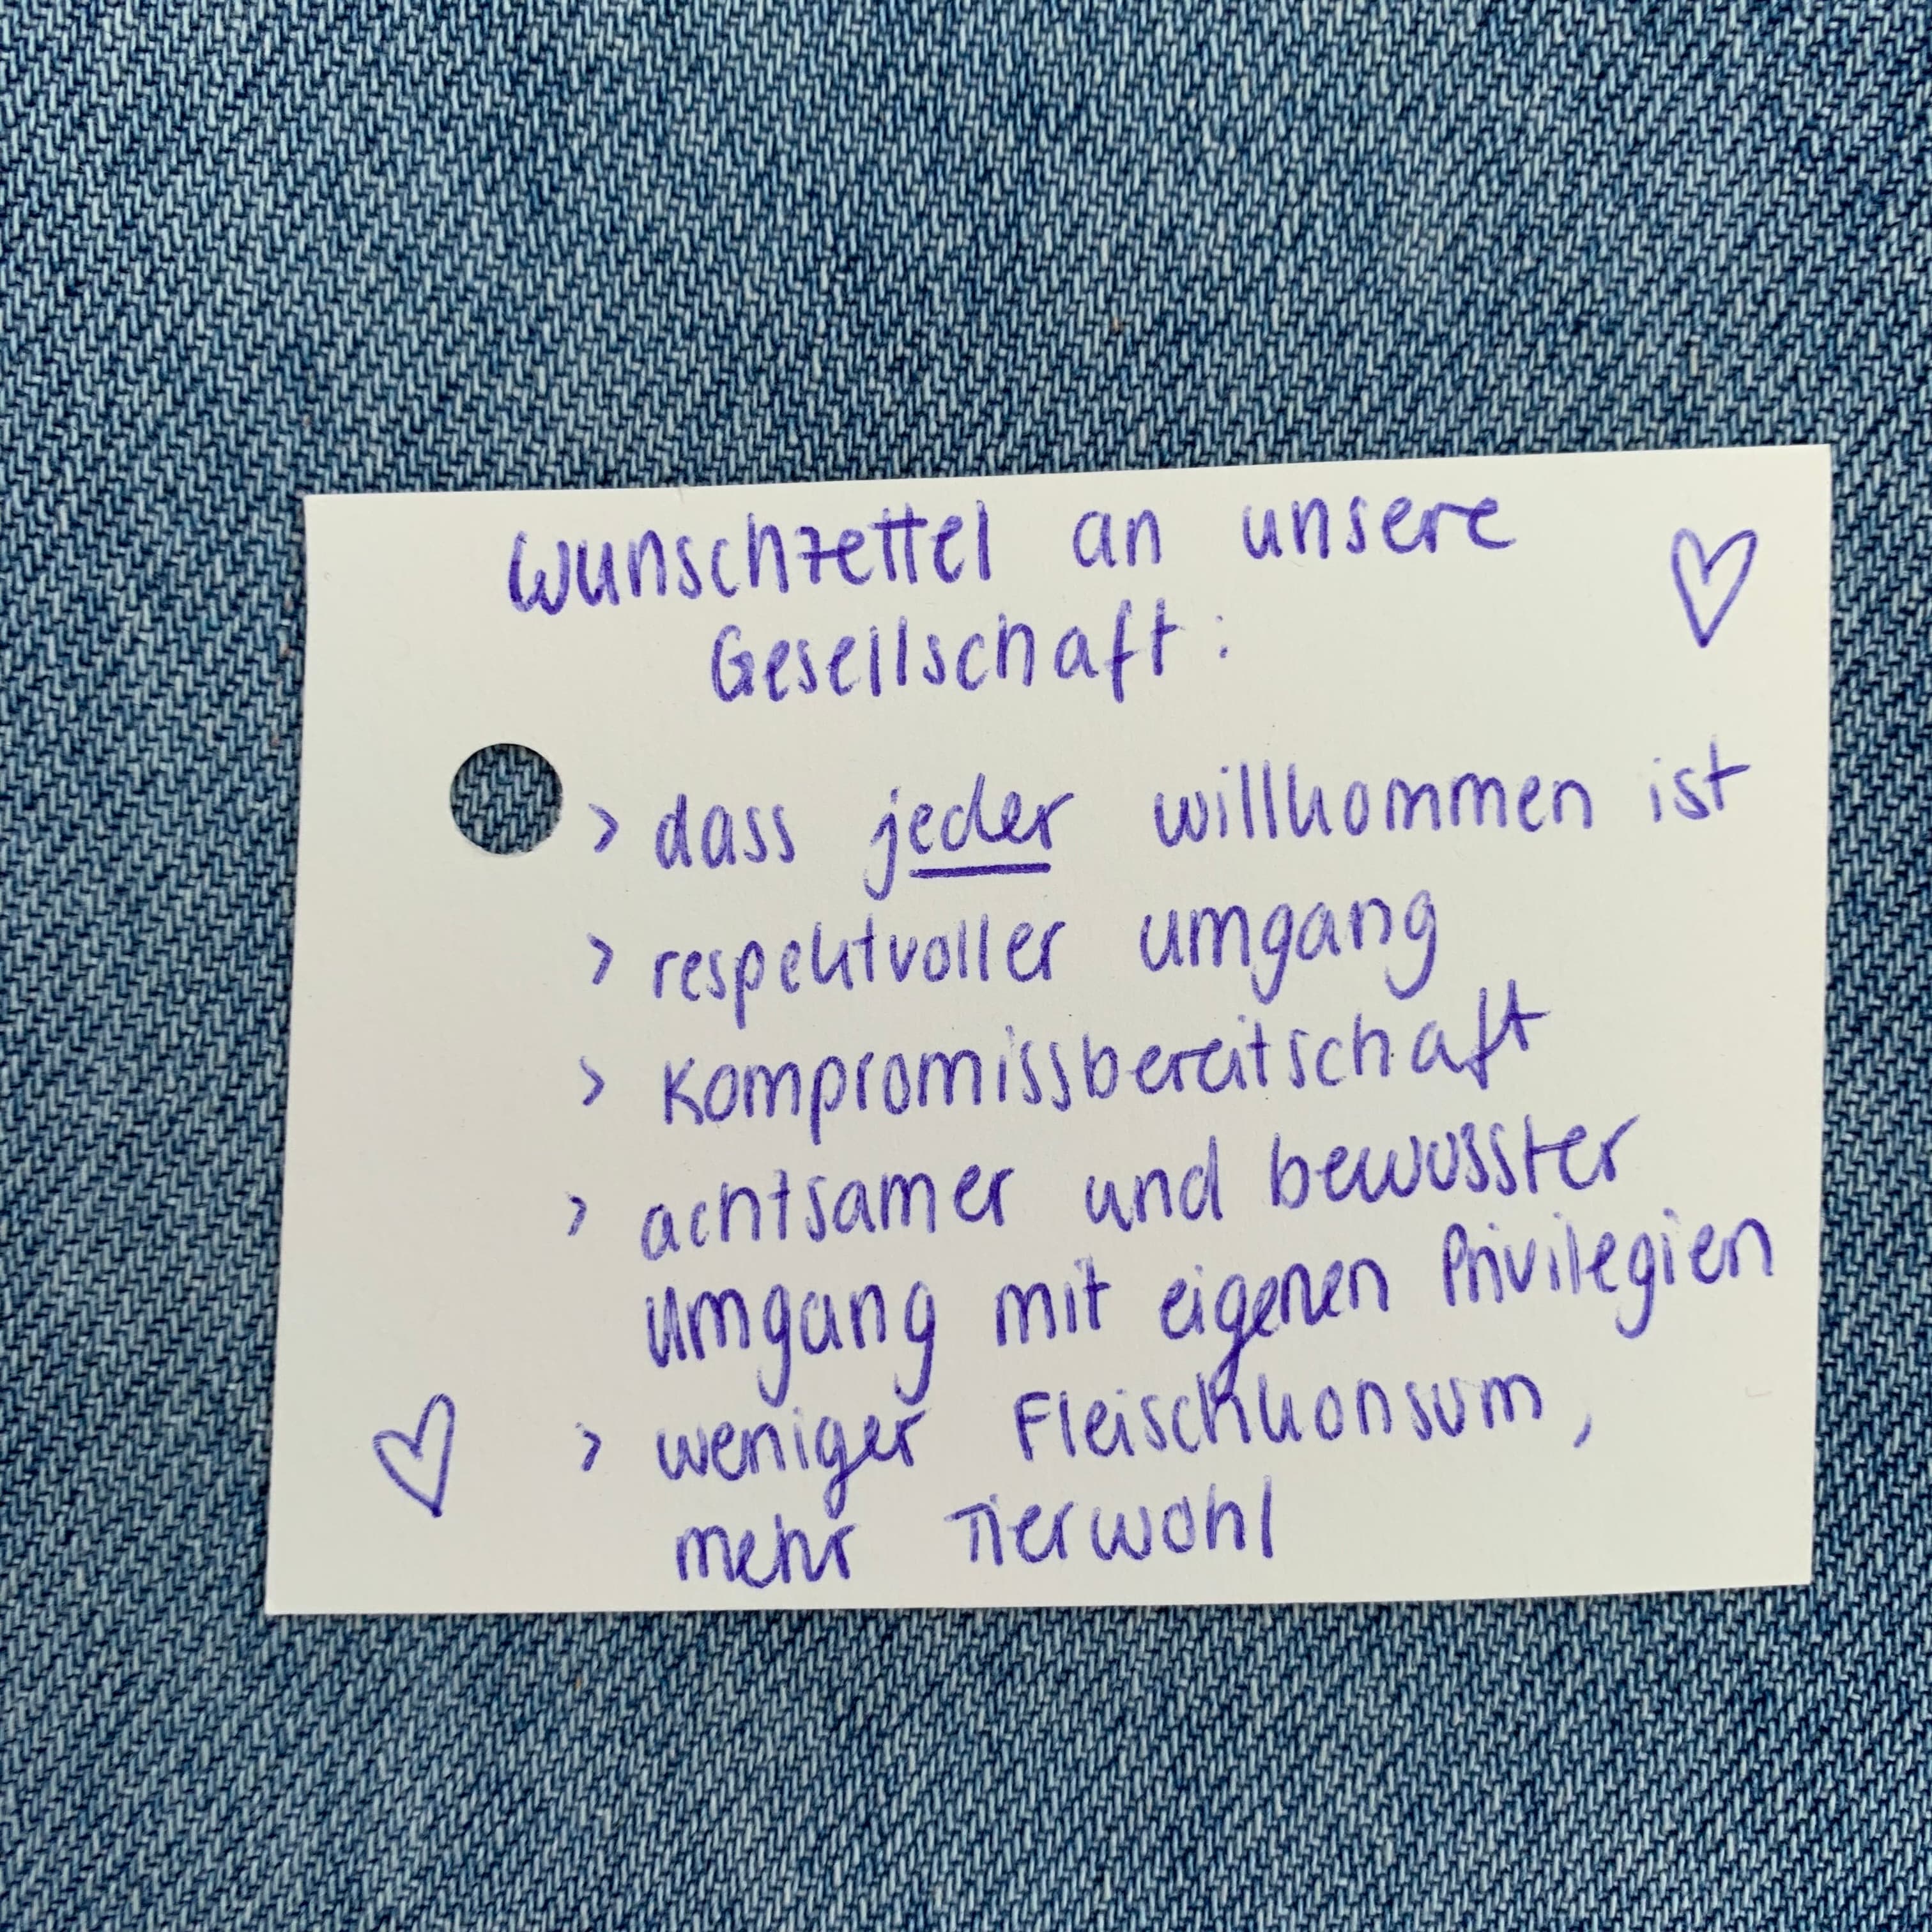 Wunschzettel an unsere
Gesellschaft:
> dass jeder willkommen ist
> respektvoller umgang
> Kompromissbereitschaft
> achtsamer und bewusster
Umgang mit eigenen Privilegien
> weniger Fleischkonsum,
mehr Tierwohl